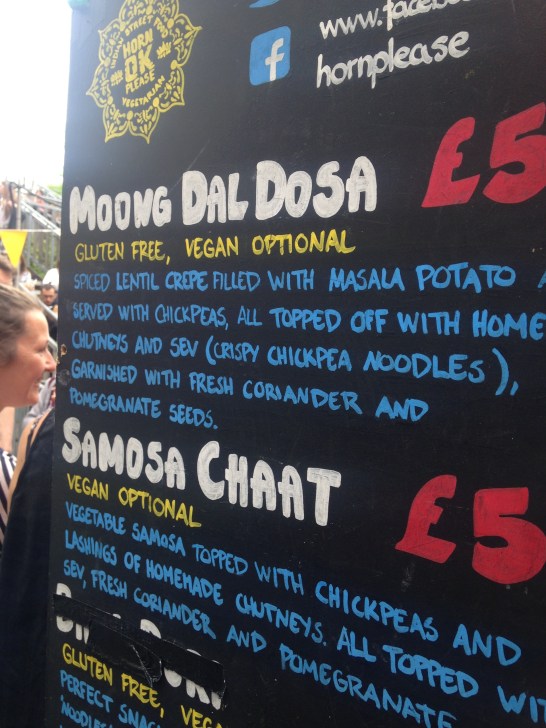 INDIAN STREET FOOD
HORN
OK
PLEASE
VEGETARIAN
www.facebo
f hornplease
MOONG DAL DOSA £5
GLUTEN FREE, VEGAN OPTIONAL
SPICED LENTIL CREPE FILLED WITH MASALA POTATO
SERVED WITH CHICKPEAS, ALL TOPPED OFF WITH HOME
CHUTNEYS AND SEV (CRISPY CHICKPEA NOODLES),
GARNISHED WITH FRESH CORIANDER AND
POMEGRANATE SEEDS.
SAMOSA CHAAT £5
VEGAN OPTIONAL
VEGETABLE SAMOSA TOPPED WITH CHICKPEAS AND
LASHINGS OF HOMEMADE CHUTNEYS. ALL TOPPED WIT
SEV, FRESH CORIANDER AND POMEGRANATE
GLUTEN FREE, VEGA
PERFECT SNAC
NOODLES